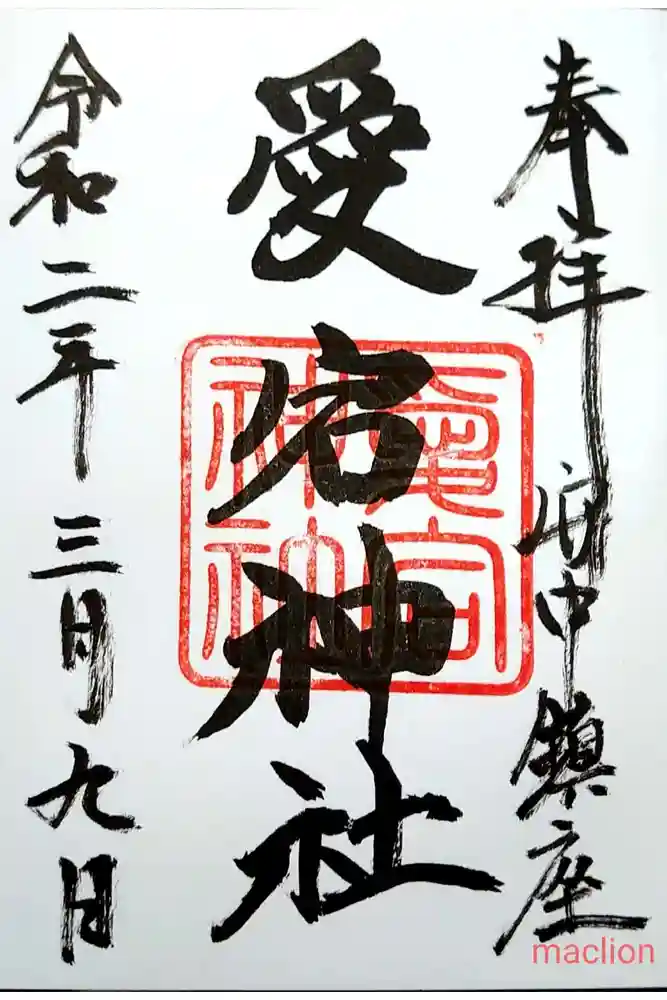 奉拝 府中鎮座
愛宕神社
愛宕
神
令和二年三月九日
maclion